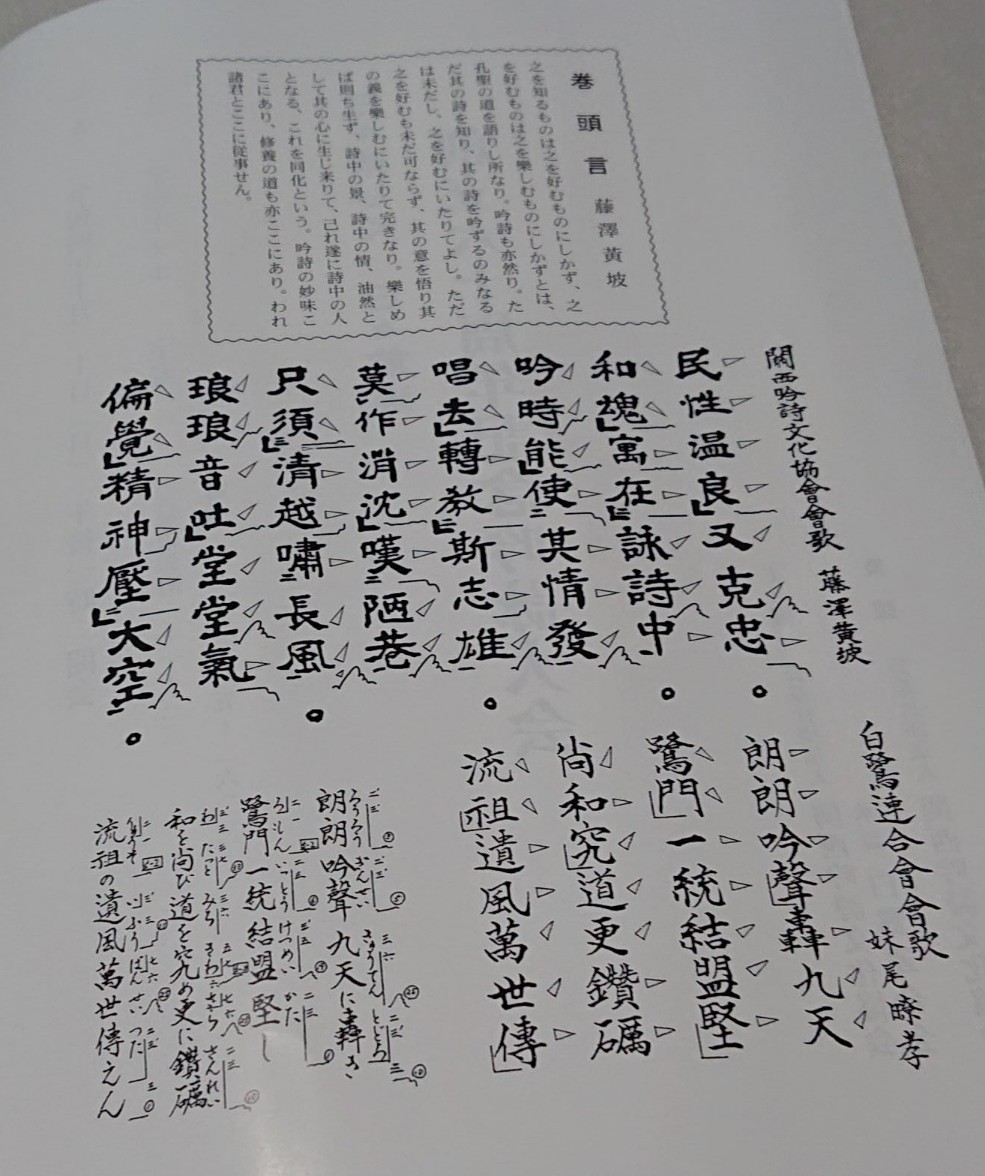 巻頭言 藤澤黄坡
之を知るものは之を好むものにしかず、之
を好むものは之を樂しむものにしかずとは、
孔聖の道を語りし所なり。吟詩も亦然り。た
だ其の詩を知り、其の詩を吟ずるのみなる
は未だし、之を好むにいたりてよし。ただ
之を好むも未だ可ならず、其の意を悟り其
の義を樂しむにいたりて完きなり。樂しめ
ば則ち生ず、詩中の景、詩中の情、油然と
して其の心に生じ来りて、己れ遂に詩中の人
となる、これを同化という。吟詩の妙味こ
こにあり、修養の道も亦ここにあり。われ
諸君とここに従事せん。
関西吟詩文化協會會歌 藤澤黄坡
民性温良又克忠
和魂寓在詠詩中
吟時能使其情發
唱去轉教斯志雄
莫作消沈嘆陋巷
只須清越嘯長風
琅琅音吐堂堂氣
偏覺精神壓大空
白鷺連合會會歌 妹尾暸孝
朗朗吟聲轟九天
鷺門一統結盟堅
尚和究道更鑽礪
流祖遺風萬世傳
朗朗吟聲九天に轟き
鷺門一統結盟堅し
和を尚び道を究め更に鑽礪
流祖の遺風萬世傳えん